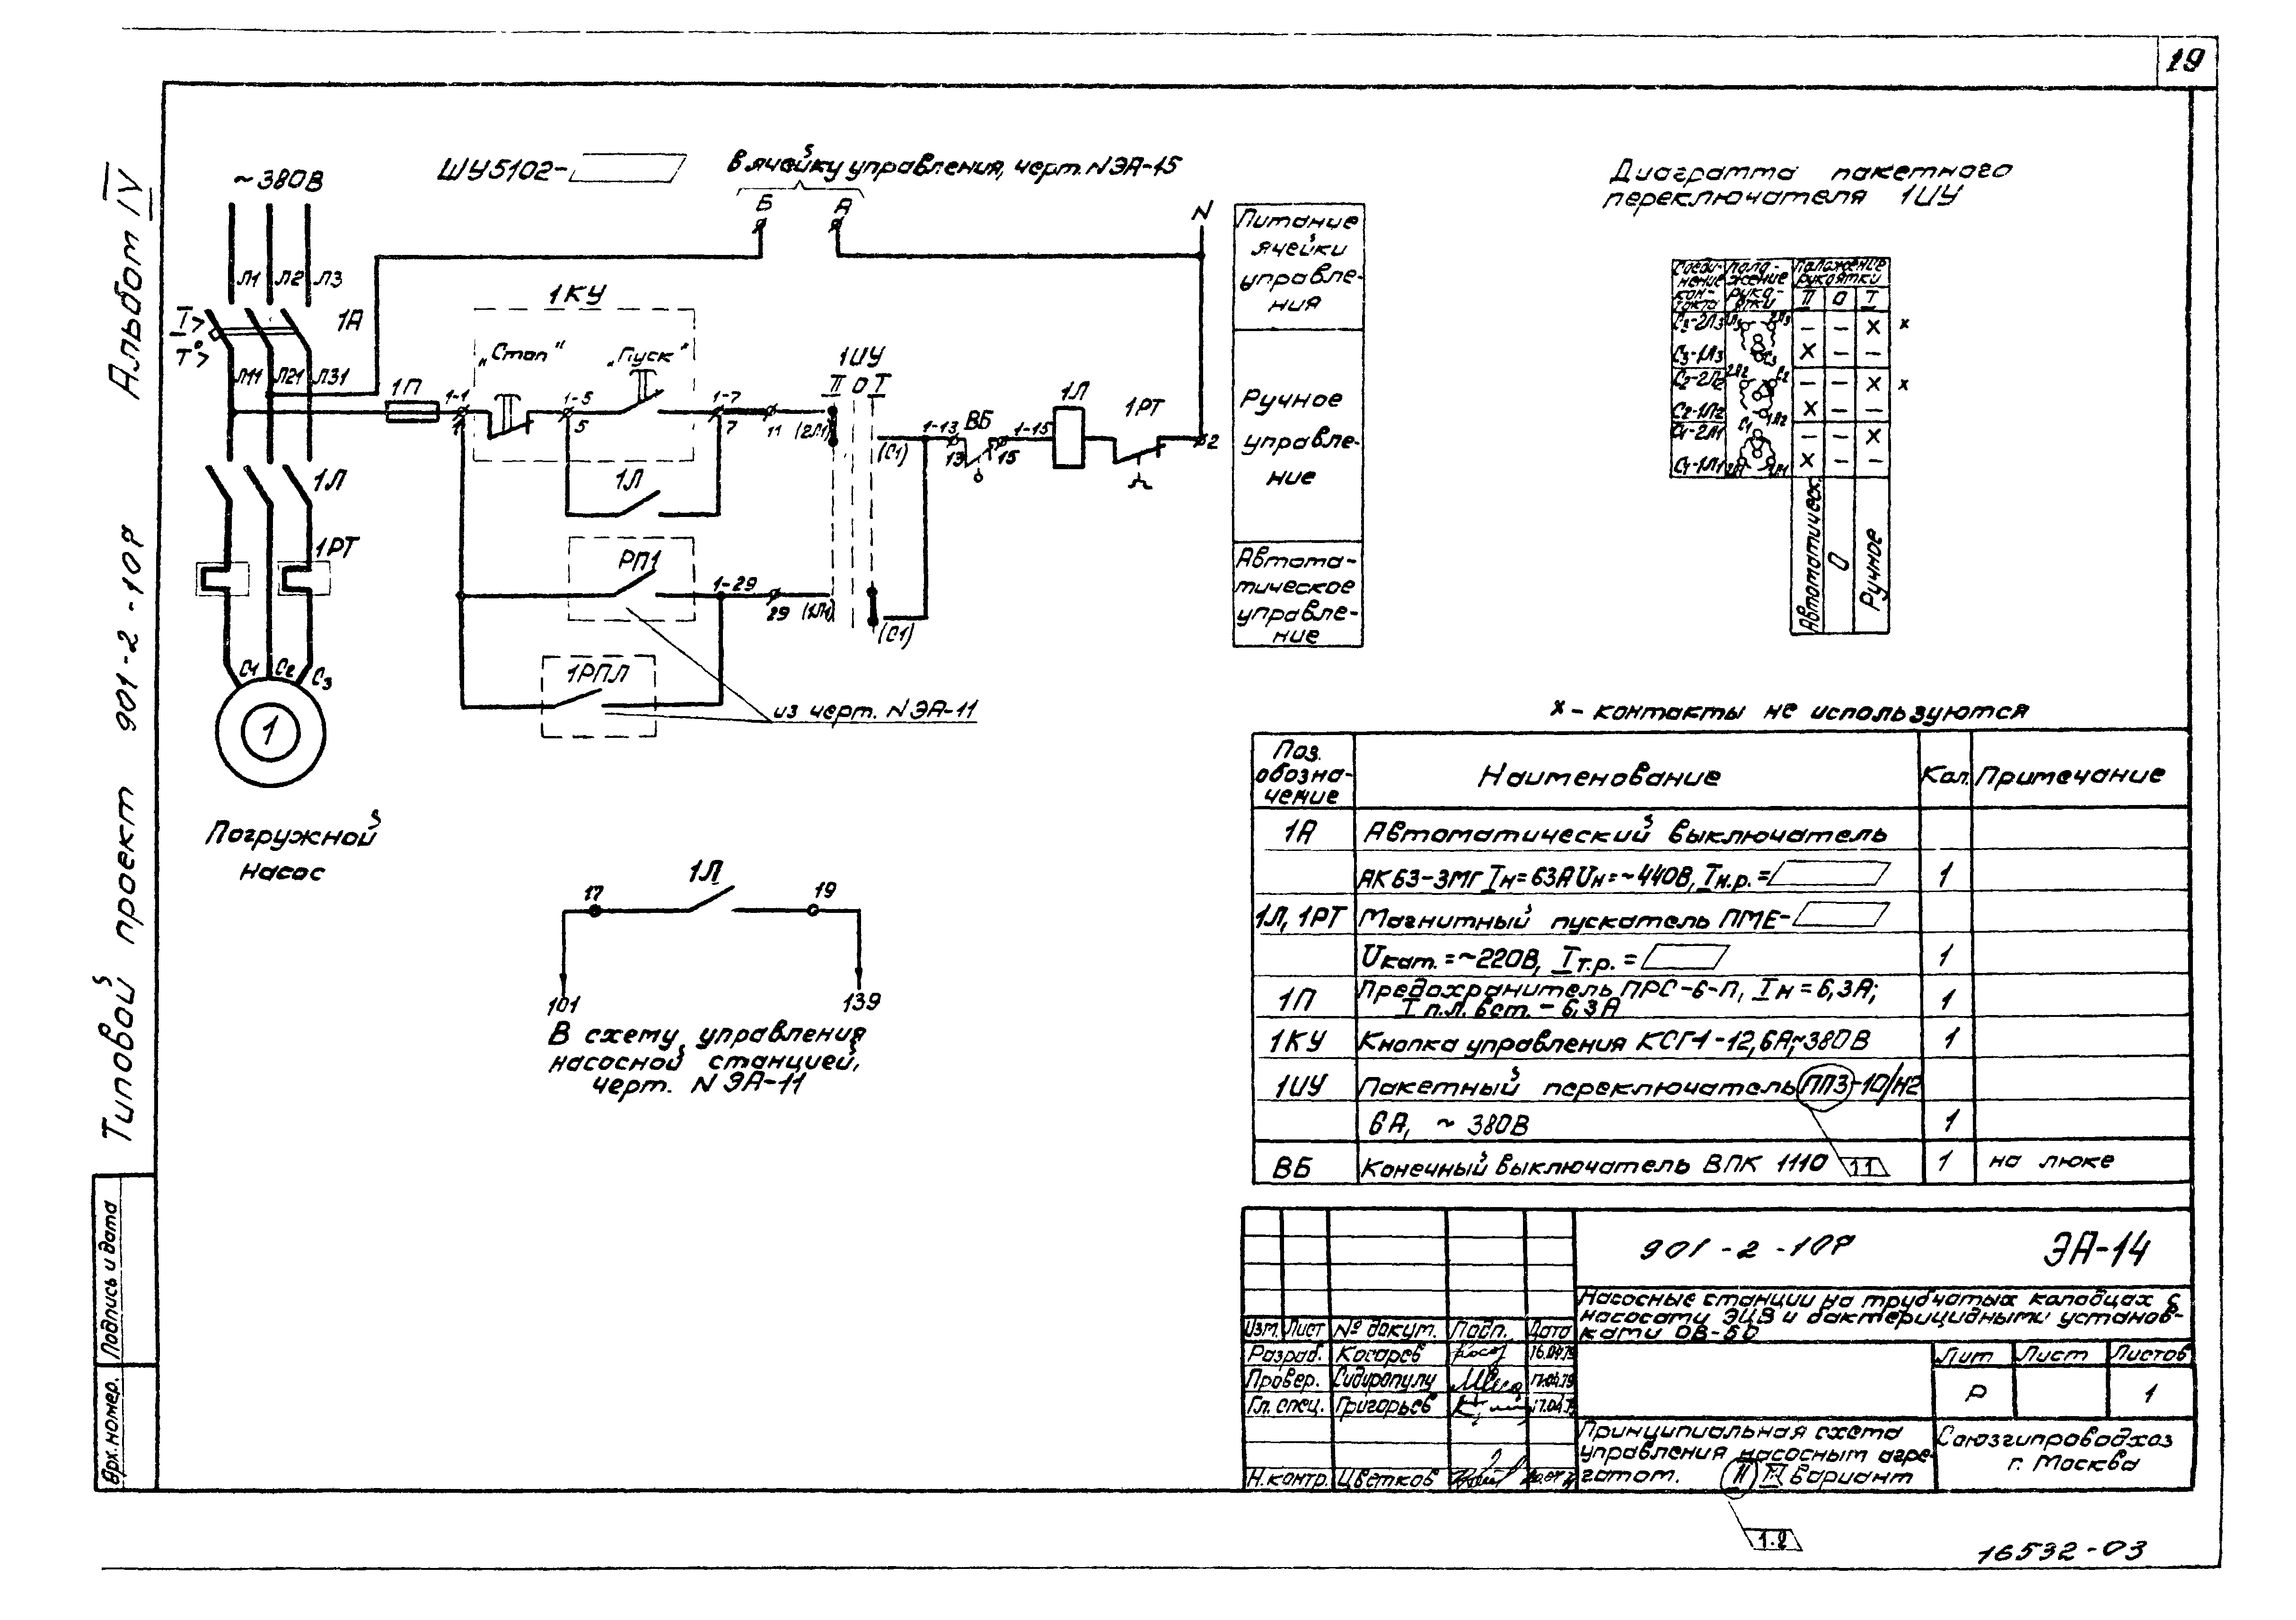 19
Альбом IV
Типовой проект 901-2-10Р
Подпись и дата
Арх.номер.
~380В
ШУ5102-
В ячейку управления, черт. N ЭА-15
Б
А
N
Л1
Л2
Л3
I>
T°>
1А
Л11
Л21
Л31
1П
1КУ
„Стоп"
„Пуск"
1-1
1
1-5
5
1-7
7
11
(2Л1)
1ИУ
II О I
(С1)
1-13
13
ВБ
1-15
15
1Л
1РТ
2
1Л
1Л
1РТ
РП1
1-29
29
(1Л1)
(С1)
1РПЛ
из черт. N ЭА-11
С1
С2
С3
1
Погружной
насос
1Л
17
19
101
139
В схему управления
насосной станцией,
черт. N ЭА-11
Питание
ячейки
управле-
ния
Ручное
управле-
ние
Автома-
тическое
управле-
ние
Диаграмма пакетного
переключателя 1ИУ
Соеди-
нение
кон-
такта
Поло-
жение
руко-
ятки
Положение
рукоятки
II О I
С3-2Л3 – – X x
С3-1Л3 X – –
С2-2Л2 – – X x
С2-1Л2 X – –
С1-2Л1 – – X
С1-1Л1 X – –
Автоматическ.
О
Ручное
x – контакты не используются
Поз.
обозна-
чение
Наименование
Кол.
Примечание
1А Автоматический выключатель
АК63-3МГ Iн=63А Uн=~440В, Iн.р.= 1
1Л, 1РТ Магнитный пускатель ПМЕ-
Uкат.=~220В, Iт.р.= 1
1П Предохранитель ПРС-6-П, Iн=6,3А; 1
I п.л. вст. – 6,3А
1КУ Кнопка управления КСГ1-12, 6А,~380В 1
1ИУ Пакетный переключатель ПП3-10/Н2
6А, ~ 380В 1
ВБ Конечный выключатель ВПК 1110 1 на люке
11
901-2-10Р ЭА-14
Насосные станции на трубчатых колодцах с
насосами ЭЦВ и бактерицидными установ-
ками ОВ-50
Изм. Лист № докум. Подп. Дата
Разраб. Косарев 16.04.79
Провер. Сидиропулу 17.04.79
Гл. спец. Григорьев 17.04.79
Н.контр. Цветков
Лит Лист Листов
Р 1
Принципиальная схема
управления насосным агре-
гатом. II вариант
Союзгипроводхоз
г. Москва
1.2
16532-03